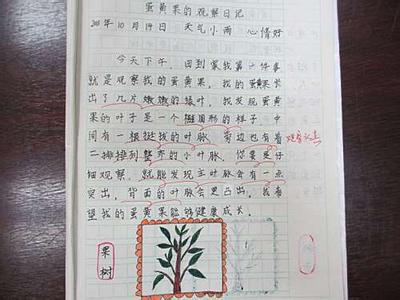 蛋黄果的观察日记
10月19日 天气小雨 心情好
今天下午，回到家我第一件事
就是观察我的蛋黄果。我的蛋黄果长
出了几片嫩嫩的绿叶，我发现蛋黄
果的叶子是一个椭圆形的样子，中
间有一根挺拔的叶脉，旁边也有着
一排排列整齐的小叶脉，你要是仔
细观察，就能发现主叶脉会有一点
突出，背面的叶脉会更凸出，我希
望我的蛋黄果能够健康成长。
果
树